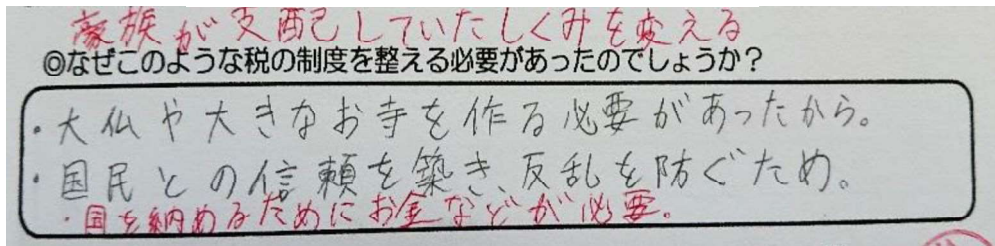 豪族が支配していたしくみを変える
◎なぜこのような税の制度を整える必要があったのでしょうか?
・大仏や大きなお寺を作る必要があったから。
・国民との信頼を築き、反乱を防ぐため。
・国を納めるためにお金などが必要。